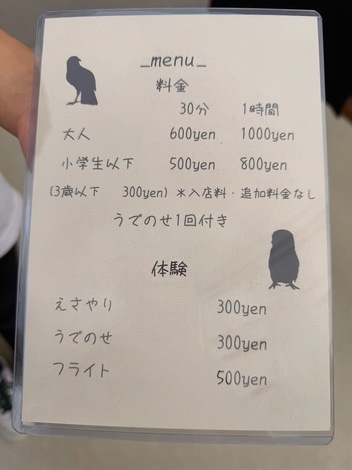 _menu_
料金
30分 1時間
大人 600yen 1000yen
小学生以下 500yen 800yen
(3歳以下 300yen) *入店料・追加料金なし
うでのせ1回付き
体験
えさやり 300yen
うでのせ 300yen
フライト 500yen